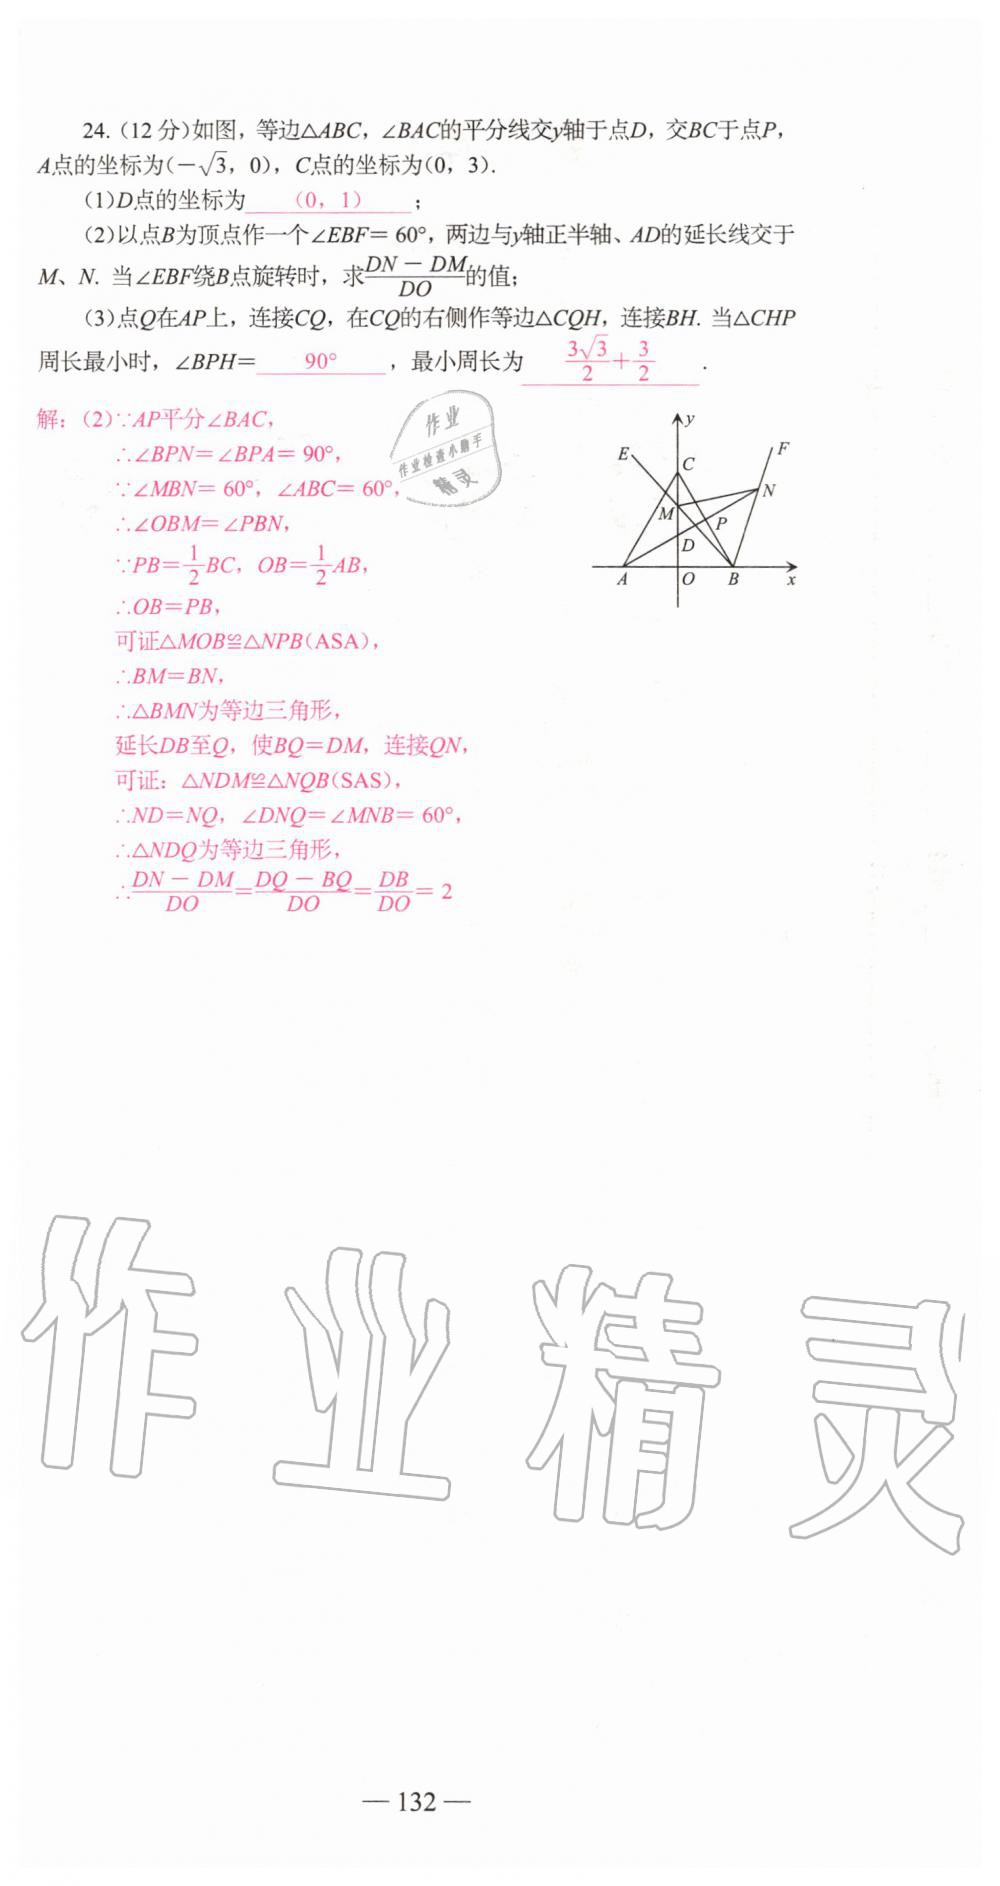 24.(12分)如图，等边△ABC，∠BAC的平分线交y轴于点D，交BC于点P，
A点的坐标为(−√3，0)，C点的坐标为(0，3).
(1)D点的坐标为 (0，1) ；
(2)以点B为顶点作一个∠EBF＝60°，两边与y轴正半轴、AD的延长线交于
M、N. 当∠EBF绕B点旋转时，求(DN－DM)/DO的值；
(3)点Q在AP上，连接CQ，在CQ的右侧作等边△CQH，连接BH. 当△CHP
周长最小时，∠BPH＝ 90° ，最小周长为 3√3/2＋3/2 .
解：(2)∵AP平分∠BAC，
∴∠BPN＝∠BPA＝90°，
∵∠MBN＝60°，∠ABC＝60°，
∴∠OBM＝∠PBN，
∵PB＝1/2BC，OB＝1/2AB，
∴OB＝PB，
可证△MOB≌△NPB(ASA)，
∴BM＝BN，
∴△BMN为等边三角形，
延长DB至Q，使BQ＝DM，连接QN，
可证：△NDM≌△NQB(SAS)，
∴ND＝NQ，∠DNQ＝∠MNB＝60°，
∴△NDQ为等边三角形，
∴(DN－DM)/DO＝(DQ－BQ)/DO＝DB/DO＝2
y
E
C
F
N
M
P
D
A
O
B
x
作业
作业检查小助手
精灵
作业精灵
— 132 —